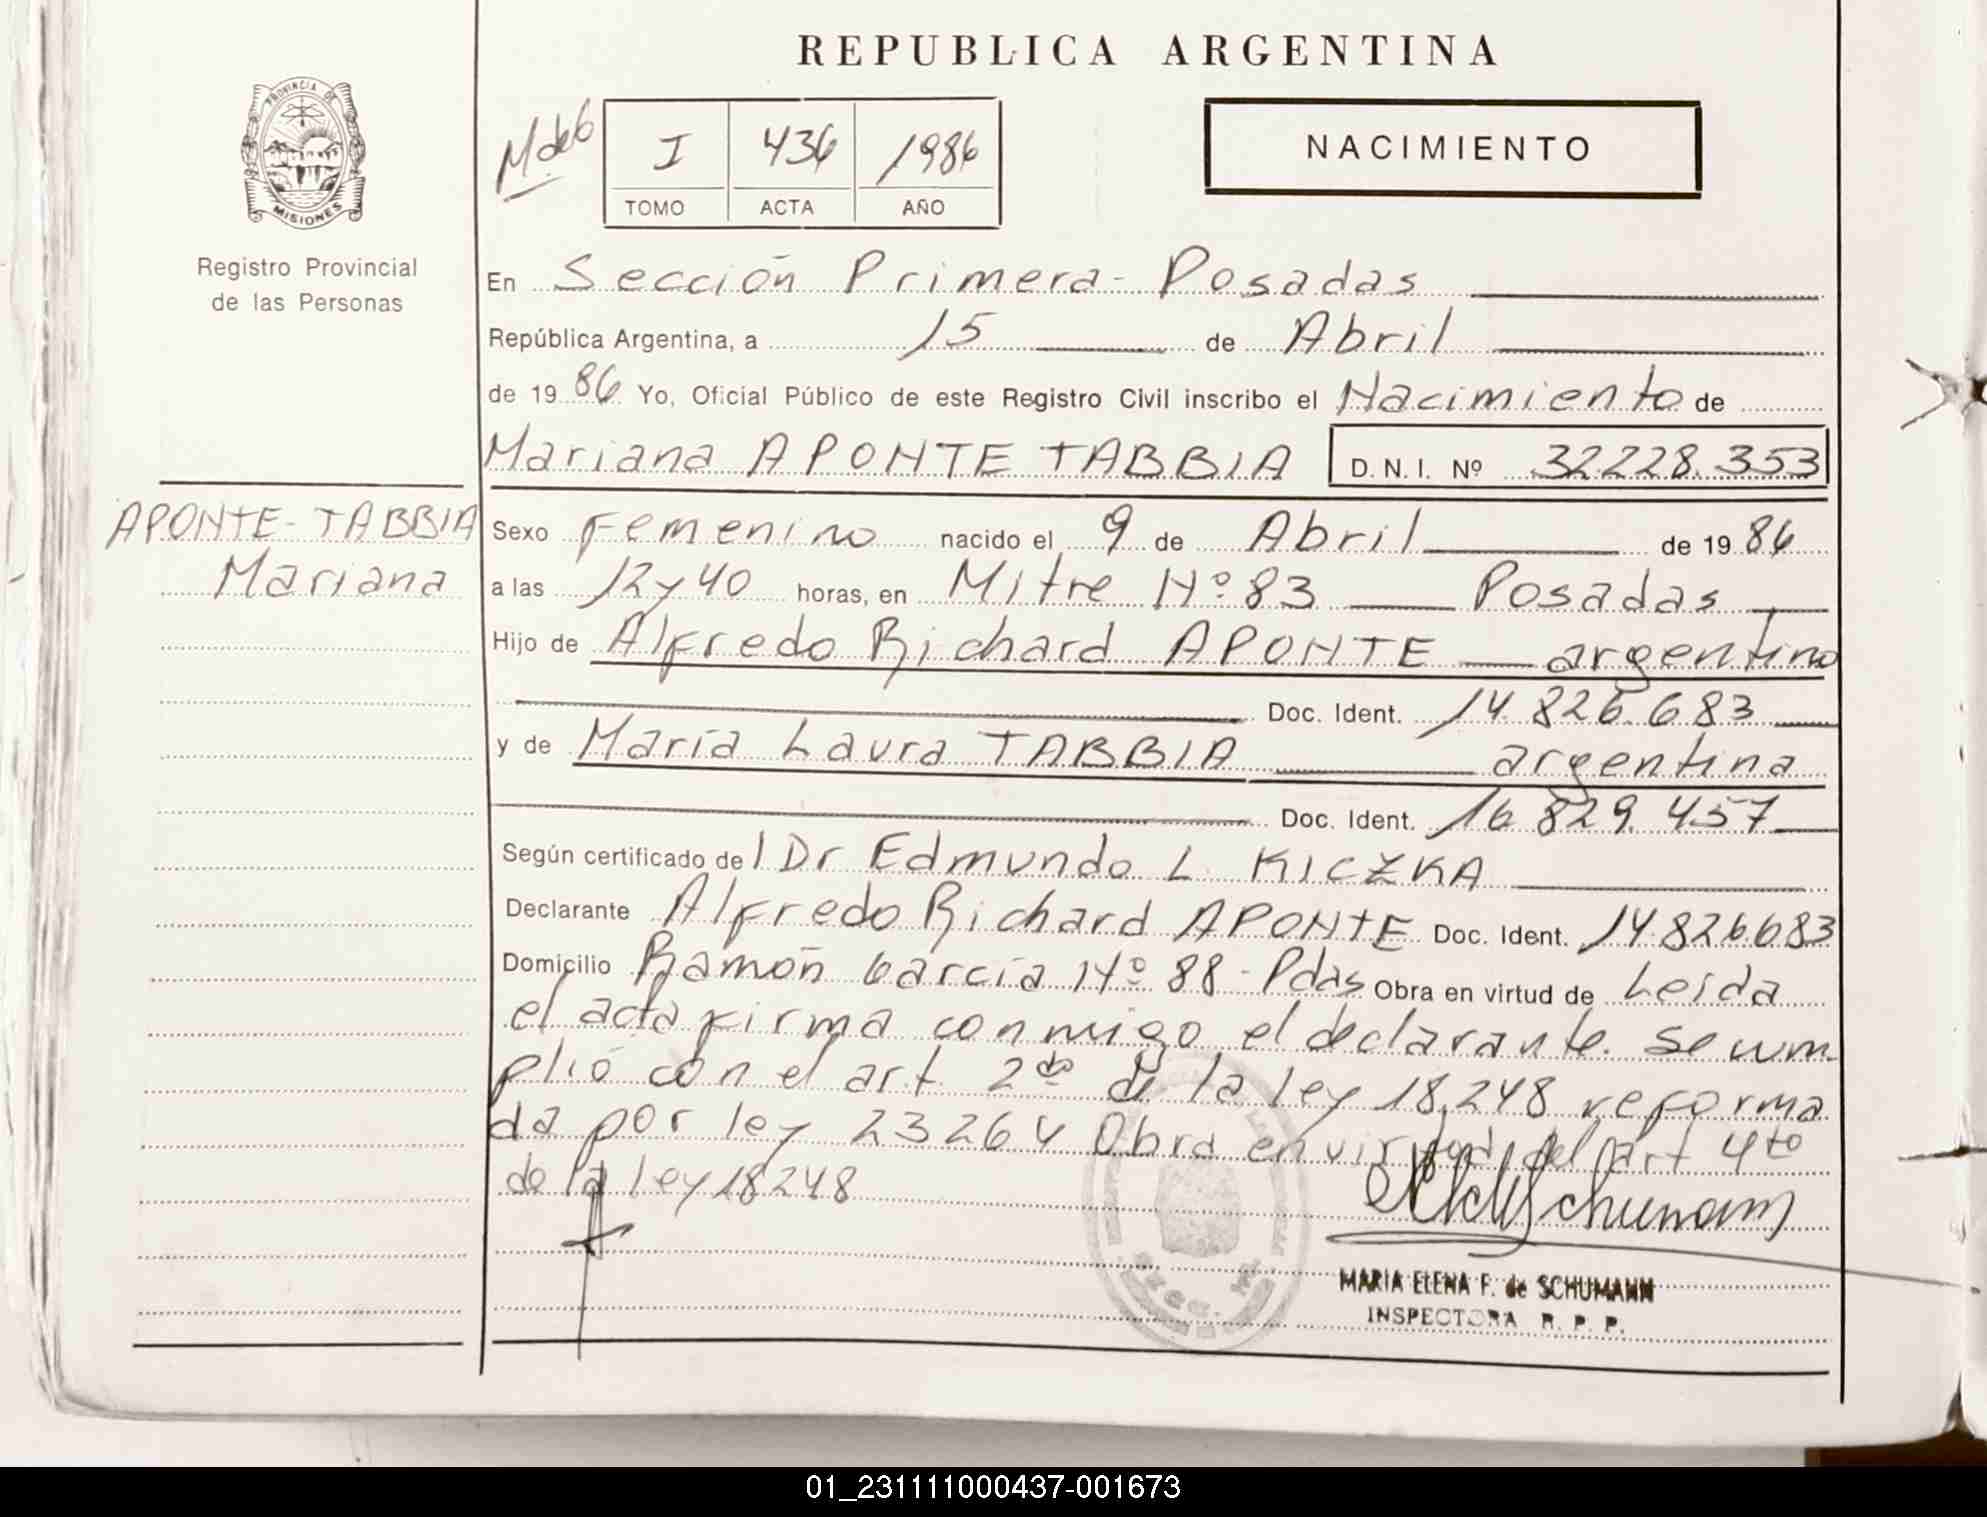 REPUBLICA ARGENTINA
PROVINCIA DE
MISIONES
Registro Provincial
de las Personas
I 436 1986
TOMO ACTA AÑO
NACIMIENTO
En Sección Primera - Posadas
República Argentina, a 15 de Abril
de 1986 Yo, Oficial Público de este Registro Civil inscribo el Nacimiento de
Mariana APONTE TABBIA D. N. I. Nº 32.228.353
APONTE-TABBIA
Mariana
Sexo Femenino nacido el 9 de Abril de 1986
a las 12 y 40 horas, en Mitre Nº 83 Posadas
Hijo de Alfredo Richard APONTE argentino
Doc. Ident. 14.826.683
y de María Laura TABBIA argentina
Doc. Ident. 16.829.457
Según certificado del Dr Edmundo L. KICZKA
Declarante Alfredo Richard APONTE Doc. Ident. 14.826.683
Domicilio Ramón García Nº 88 - Pdas Obra en virtud de Leída
el acta firma conmigo el declarante. Se cum
plió con el art. 2do de la ley 18.248 reforma
da por ley 23264 Obra en virtud del art 4to
de la ley 18248
MARIA ELENA F. de SCHUMANN
INSPECTORA R. P. P.
01_231111000437-001673